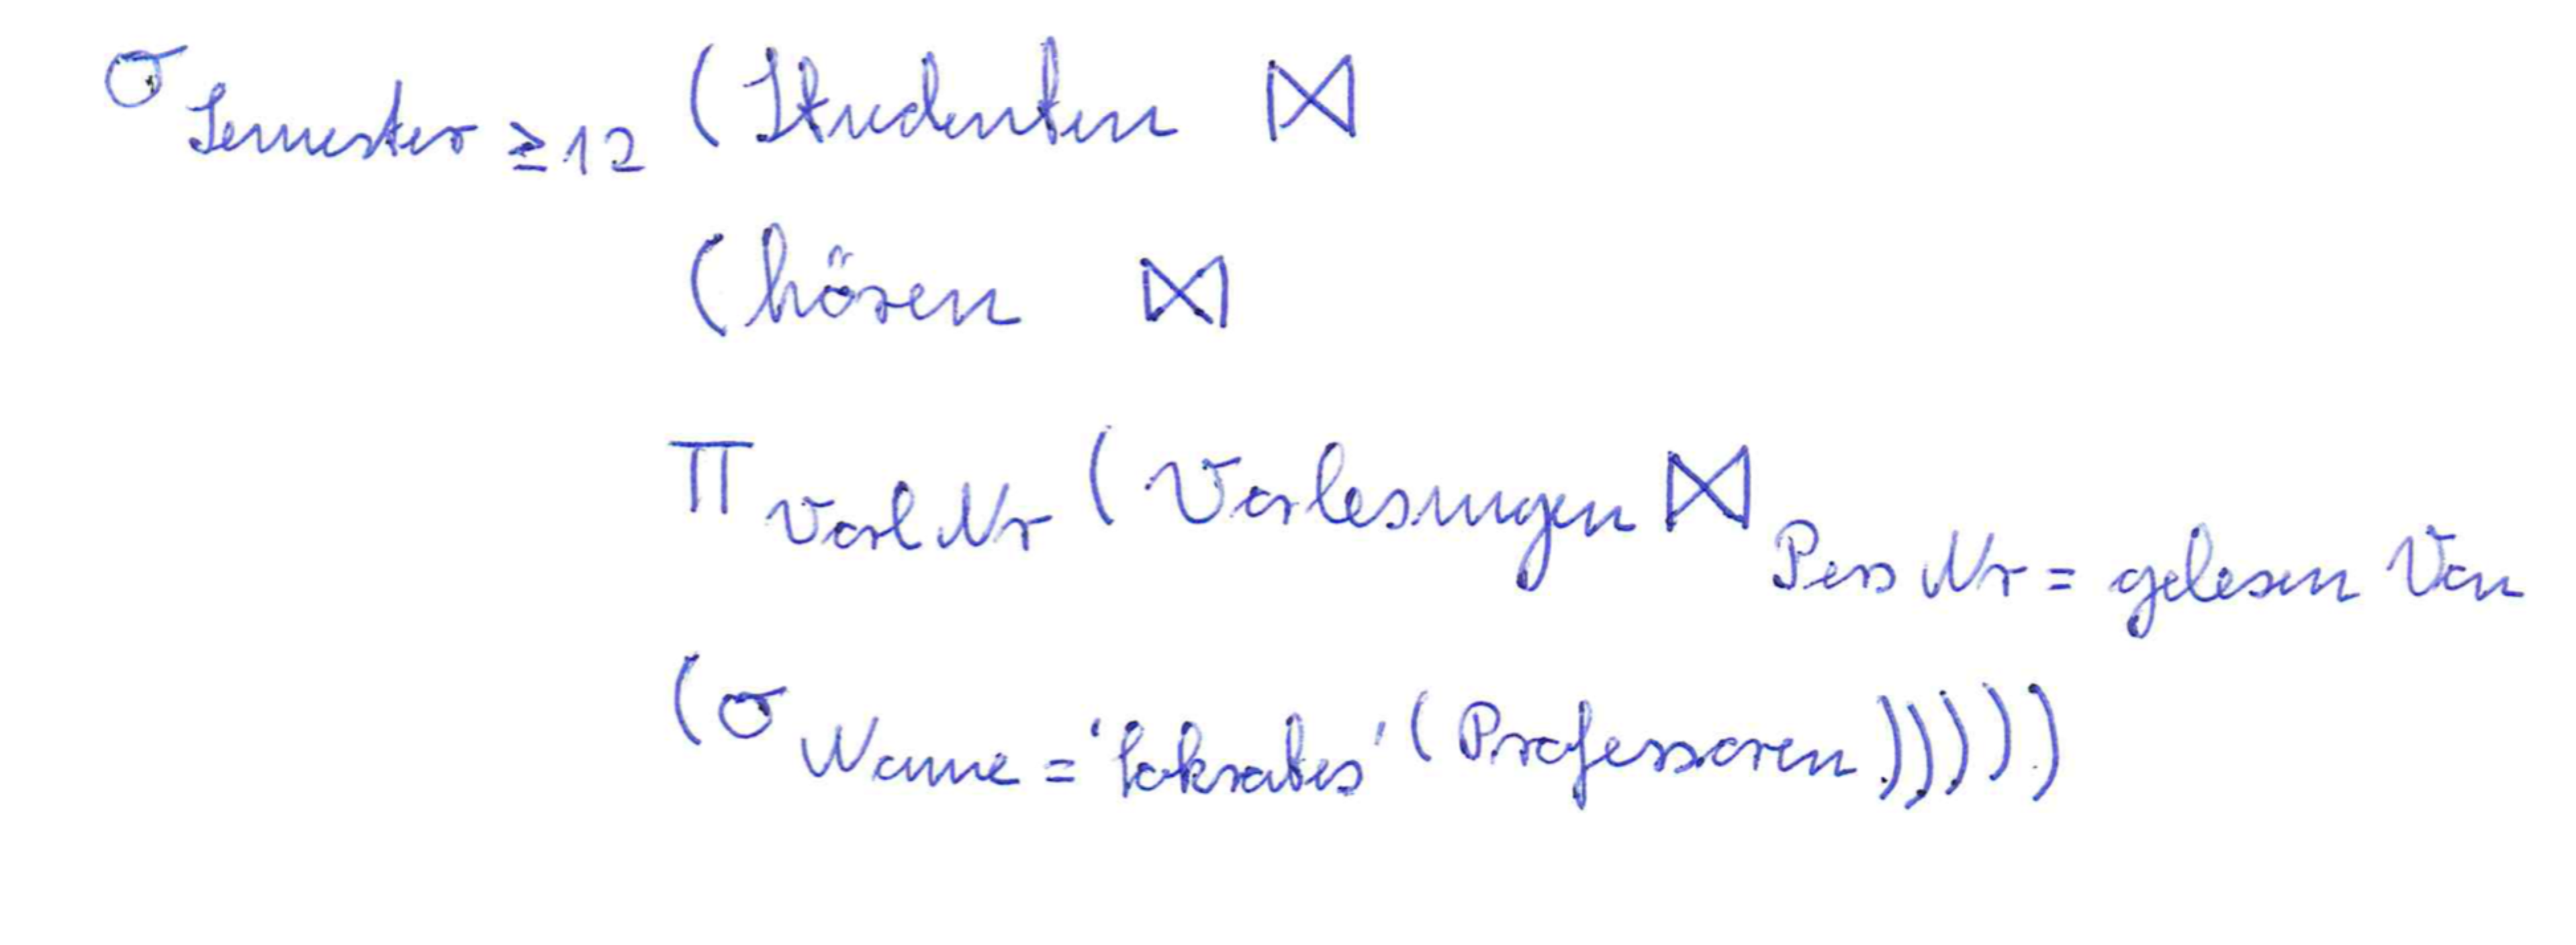 σ Semester ≥ 12 (Studenten ⋈
(hören ⋈
π VorlNr (Vorlesungen ⋈ PersNr = gelesen Von
(σ Name = 'Sokrates' (Professoren)))))